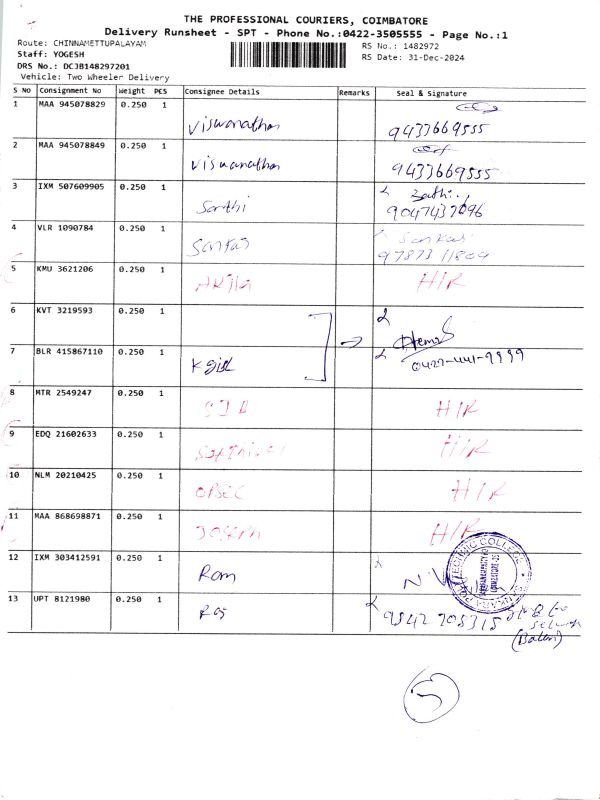 THE PROFESSIONAL COURIERS, COIMBATORE
Delivery Runsheet - SPT - Phone No.:0422-3505555 - Page No.:1
Route: CHINNAMETTUPALAYAM
Staff: YOGESH
DRS No.: DCJB148297201
Vehicle: Two Wheeler Delivery
RS No.: 1482972
RS Date: 31-Dec-2024
S No Consignment No Weight PCS Consignee Details Remarks Seal & Signature
1 MAA 945078829 0.250 1 Viswanathan 9433669555
2 MAA 945078849 0.250 1 Viswanathan 9433669555
3 IXM 507609905 0.250 1 Santhi 9047437096
4 VLR 1090784 0.250 1 Sankar Sankar 9787311809
5 KMU 3621206 0.250 1 H/R
6 KVT 3219593 0.250 1
7 BLR 415867110 0.250 1 0427-441-9999
8 MTR 2549247 0.250 1 H/R
9 EDQ 21602633 0.250 1 H/R
10 NLM 20210425 0.250 1 H/R
11 MAA 868698871 0.250 1 H/R
12 IXM 303412591 0.250 1 Ram
13 UPT 8121980 0.250 1 Raj 9842708315
POLYTECHNIC COLLEGE
5